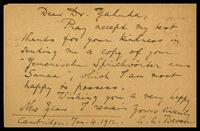 Dear Dr. Yahuda,
Pray accept my best
thanks for your kindness in
sending me a copy of your
"Yemenischer Sprichwörter aus
Sanaa", which I am most
happy to possess.
Wishing you a very happy
New Year I remain yours sincerely
Cambridge. Jan. 4. 1912. A. A. Bevan